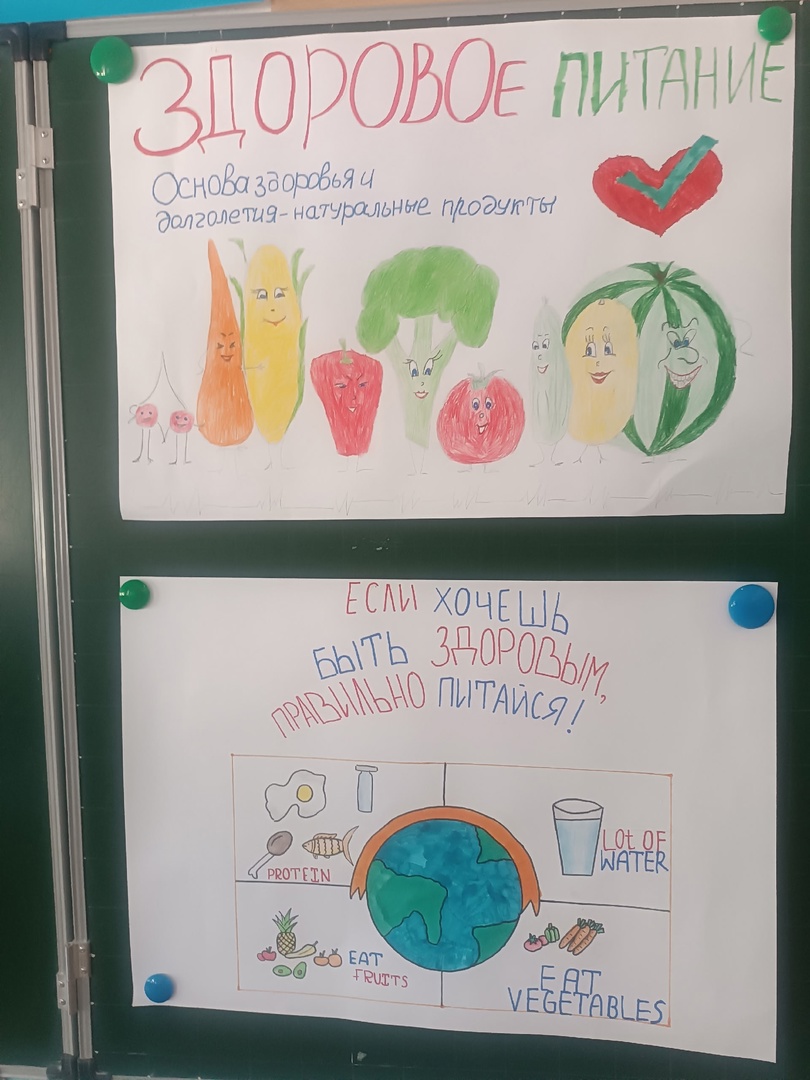 ЗДОРОВОЕ ПИТАНИЕ
Основа здоровья и
долголетия - натуральные продукты
ЕСЛИ ХОЧЕШЬ
БЫТЬ ЗДОРОВЫМ,
ПРАВИЛЬНО ПИТАЙСЯ!
PROTEIN
LOt OF
WATER
EAT
FRUITS
EAT
VEGETABLES